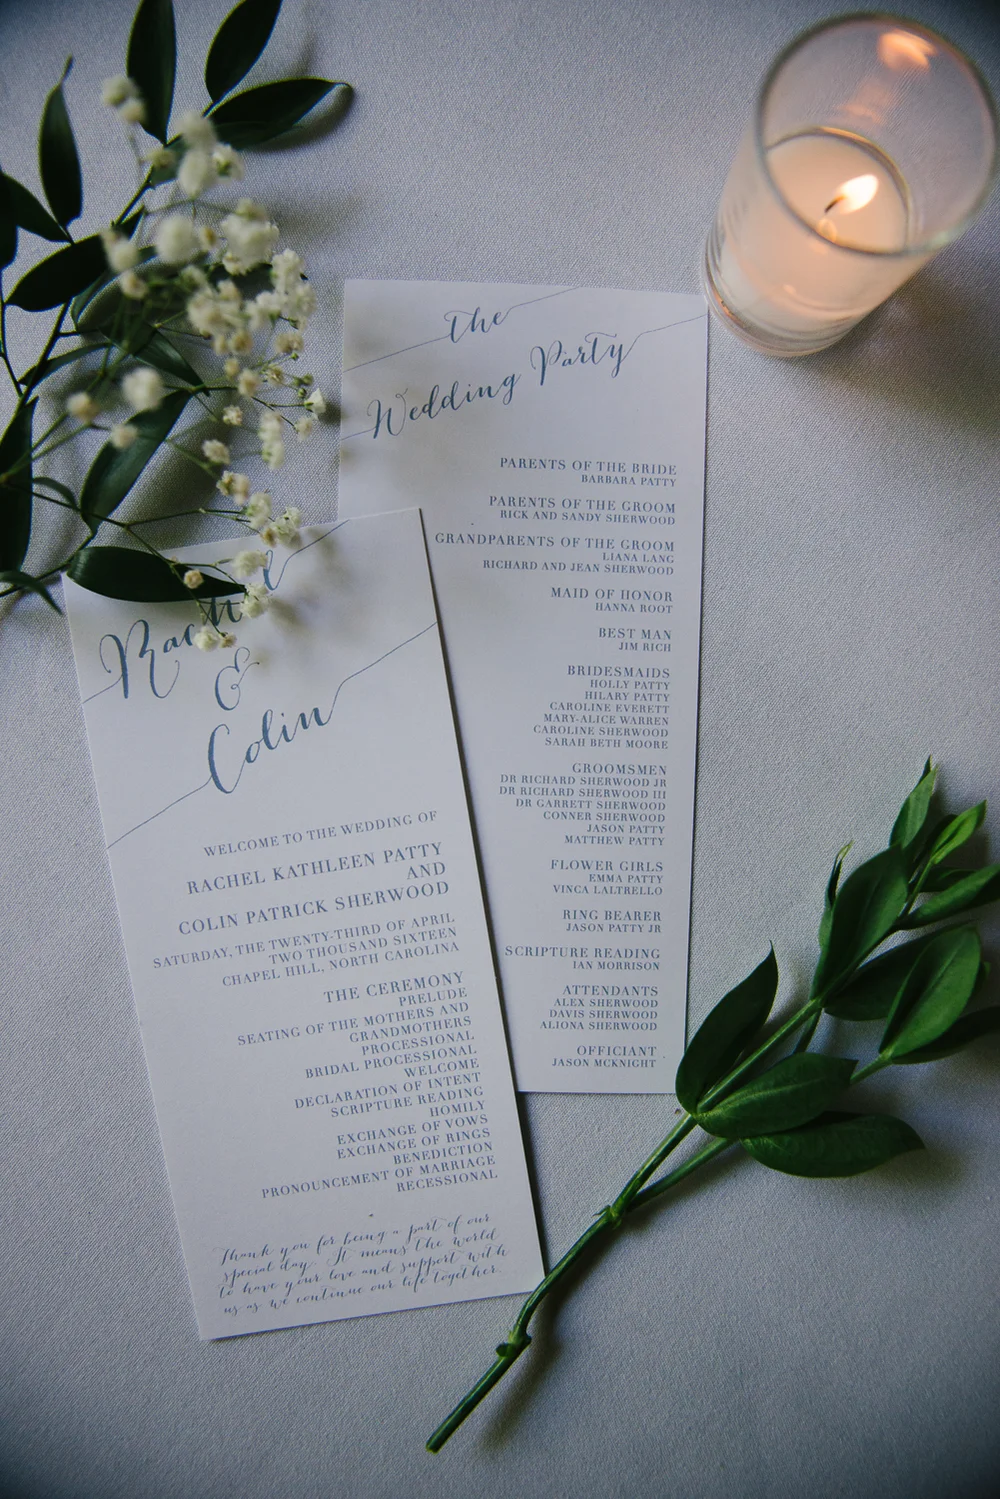 The
Wedding Party
PARENTS OF THE BRIDE
BARBARA PATTY
PARENTS OF THE GROOM
RICK AND SANDY SHERWOOD
GRANDPARENTS OF THE GROOM
LIANA LANG
RICHARD AND JEAN SHERWOOD
MAID OF HONOR
HANNA ROOT
BEST MAN
JIM RICH
BRIDESMAIDS
HOLLY PATTY
HILARY PATTY
CAROLINE EVERETT
MARY-ALICE WARREN
CAROLINE SHERWOOD
SARAH BETH MOORE
GROOMSMEN
DR RICHARD SHERWOOD JR
DR RICHARD SHERWOOD III
DR GARRETT SHERWOOD
CONNER SHERWOOD
JASON PATTY
MATTHEW PATTY
FLOWER GIRLS
EMMA PATTY
VINCA LALTRELLO
RING BEARER
JASON PATTY JR
SCRIPTURE READING
IAN MORRISON
ATTENDANTS
ALEX SHERWOOD
DAVIS SHERWOOD
ALIONA SHERWOOD
OFFICIANT
JASON MCKNIGHT
Rachel
&
Colin
WELCOME TO THE WEDDING OF
RACHEL KATHLEEN PATTY
AND
COLIN PATRICK SHERWOOD
SATURDAY, THE TWENTY-THIRD OF APRIL
TWO THOUSAND SIXTEEN
CHAPEL HILL, NORTH CAROLINA
THE CEREMONY
PRELUDE
SEATING OF THE MOTHERS AND
GRANDMOTHERS
PROCESSIONAL
BRIDAL PROCESSIONAL
WELCOME
DECLARATION OF INTENT
SCRIPTURE READING
HOMILY
EXCHANGE OF VOWS
EXCHANGE OF RINGS
BENEDICTION
PRONOUNCEMENT OF MARRIAGE
RECESSIONAL
Thank you for being a part of our
special day. It means the world
to have your love and support with
us as we continue our life together.